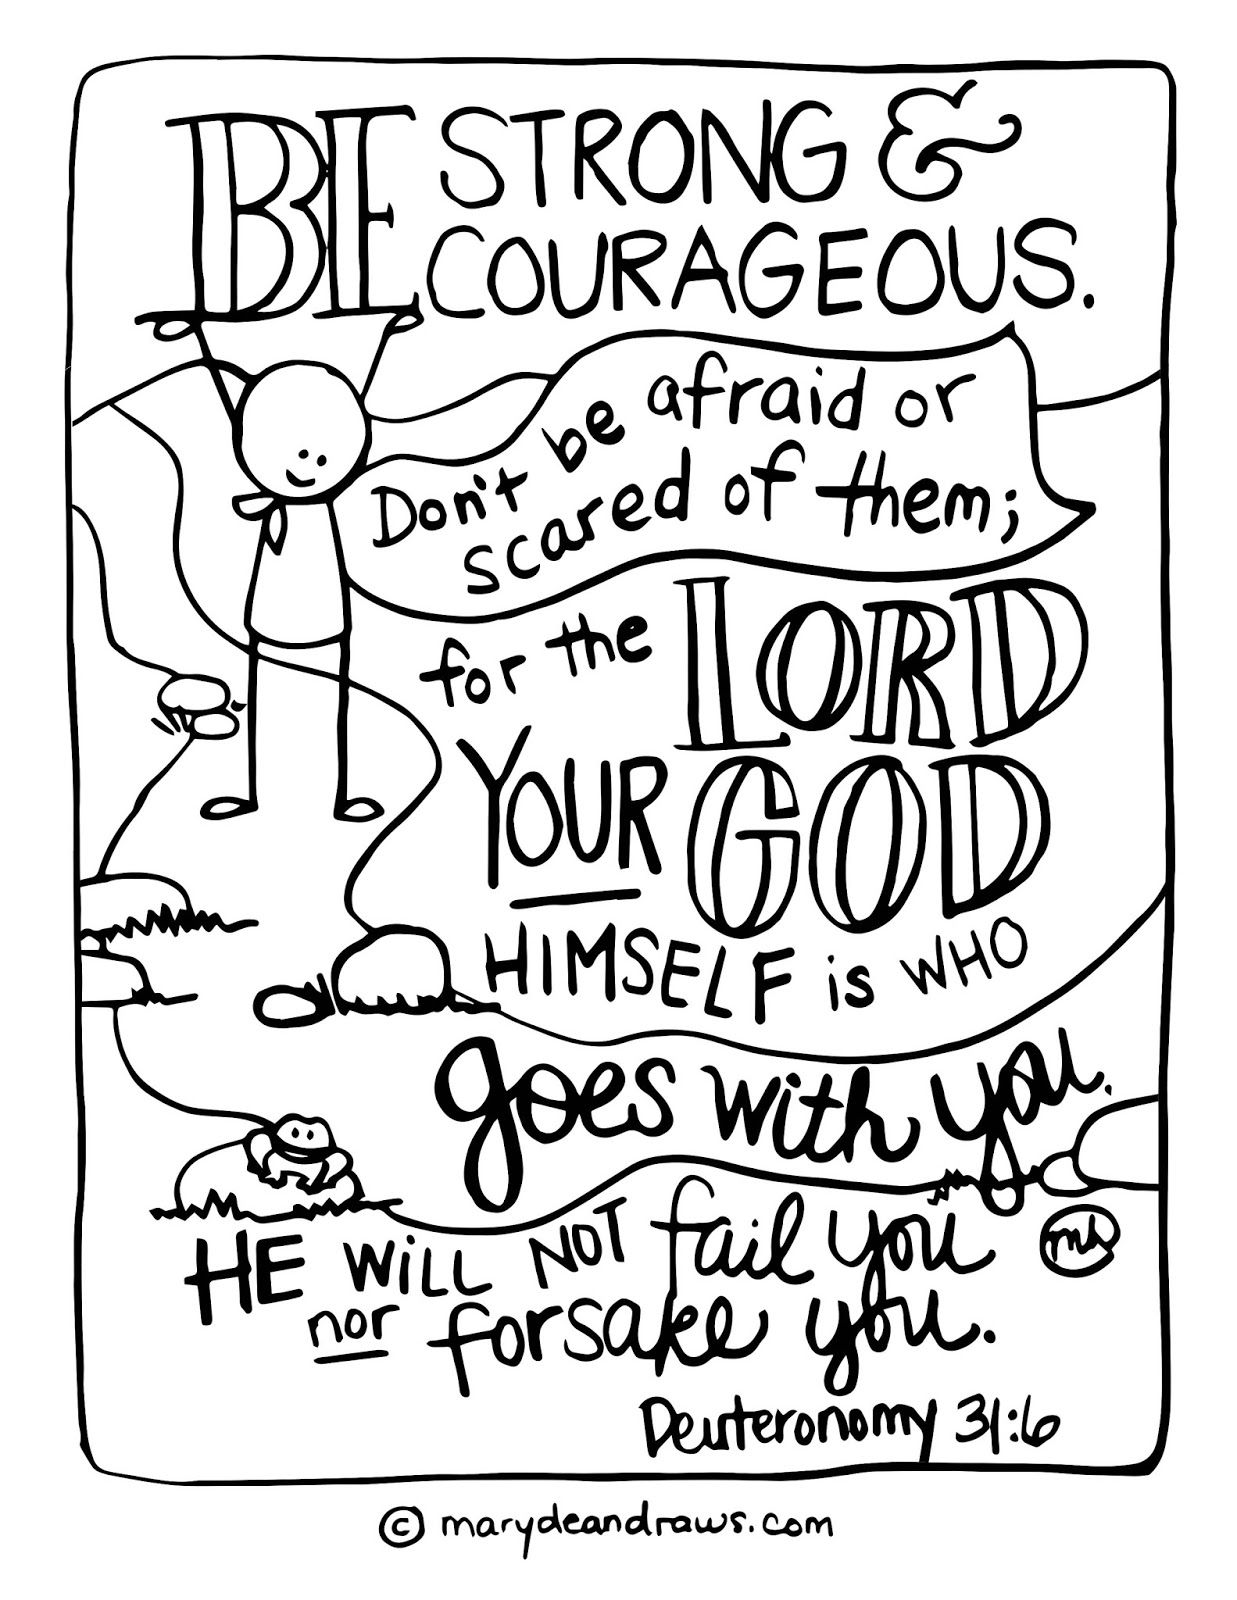 BE STRONG &
COURAGEOUS.
Don't be afraid or
scared of them;
for the LORD
YOUR GOD
HIMSELF is WHO
goes with you.
HE WiLL NOT fail you
nor forsake you.
Deuteronomy 31:6
© marydeandraws.com